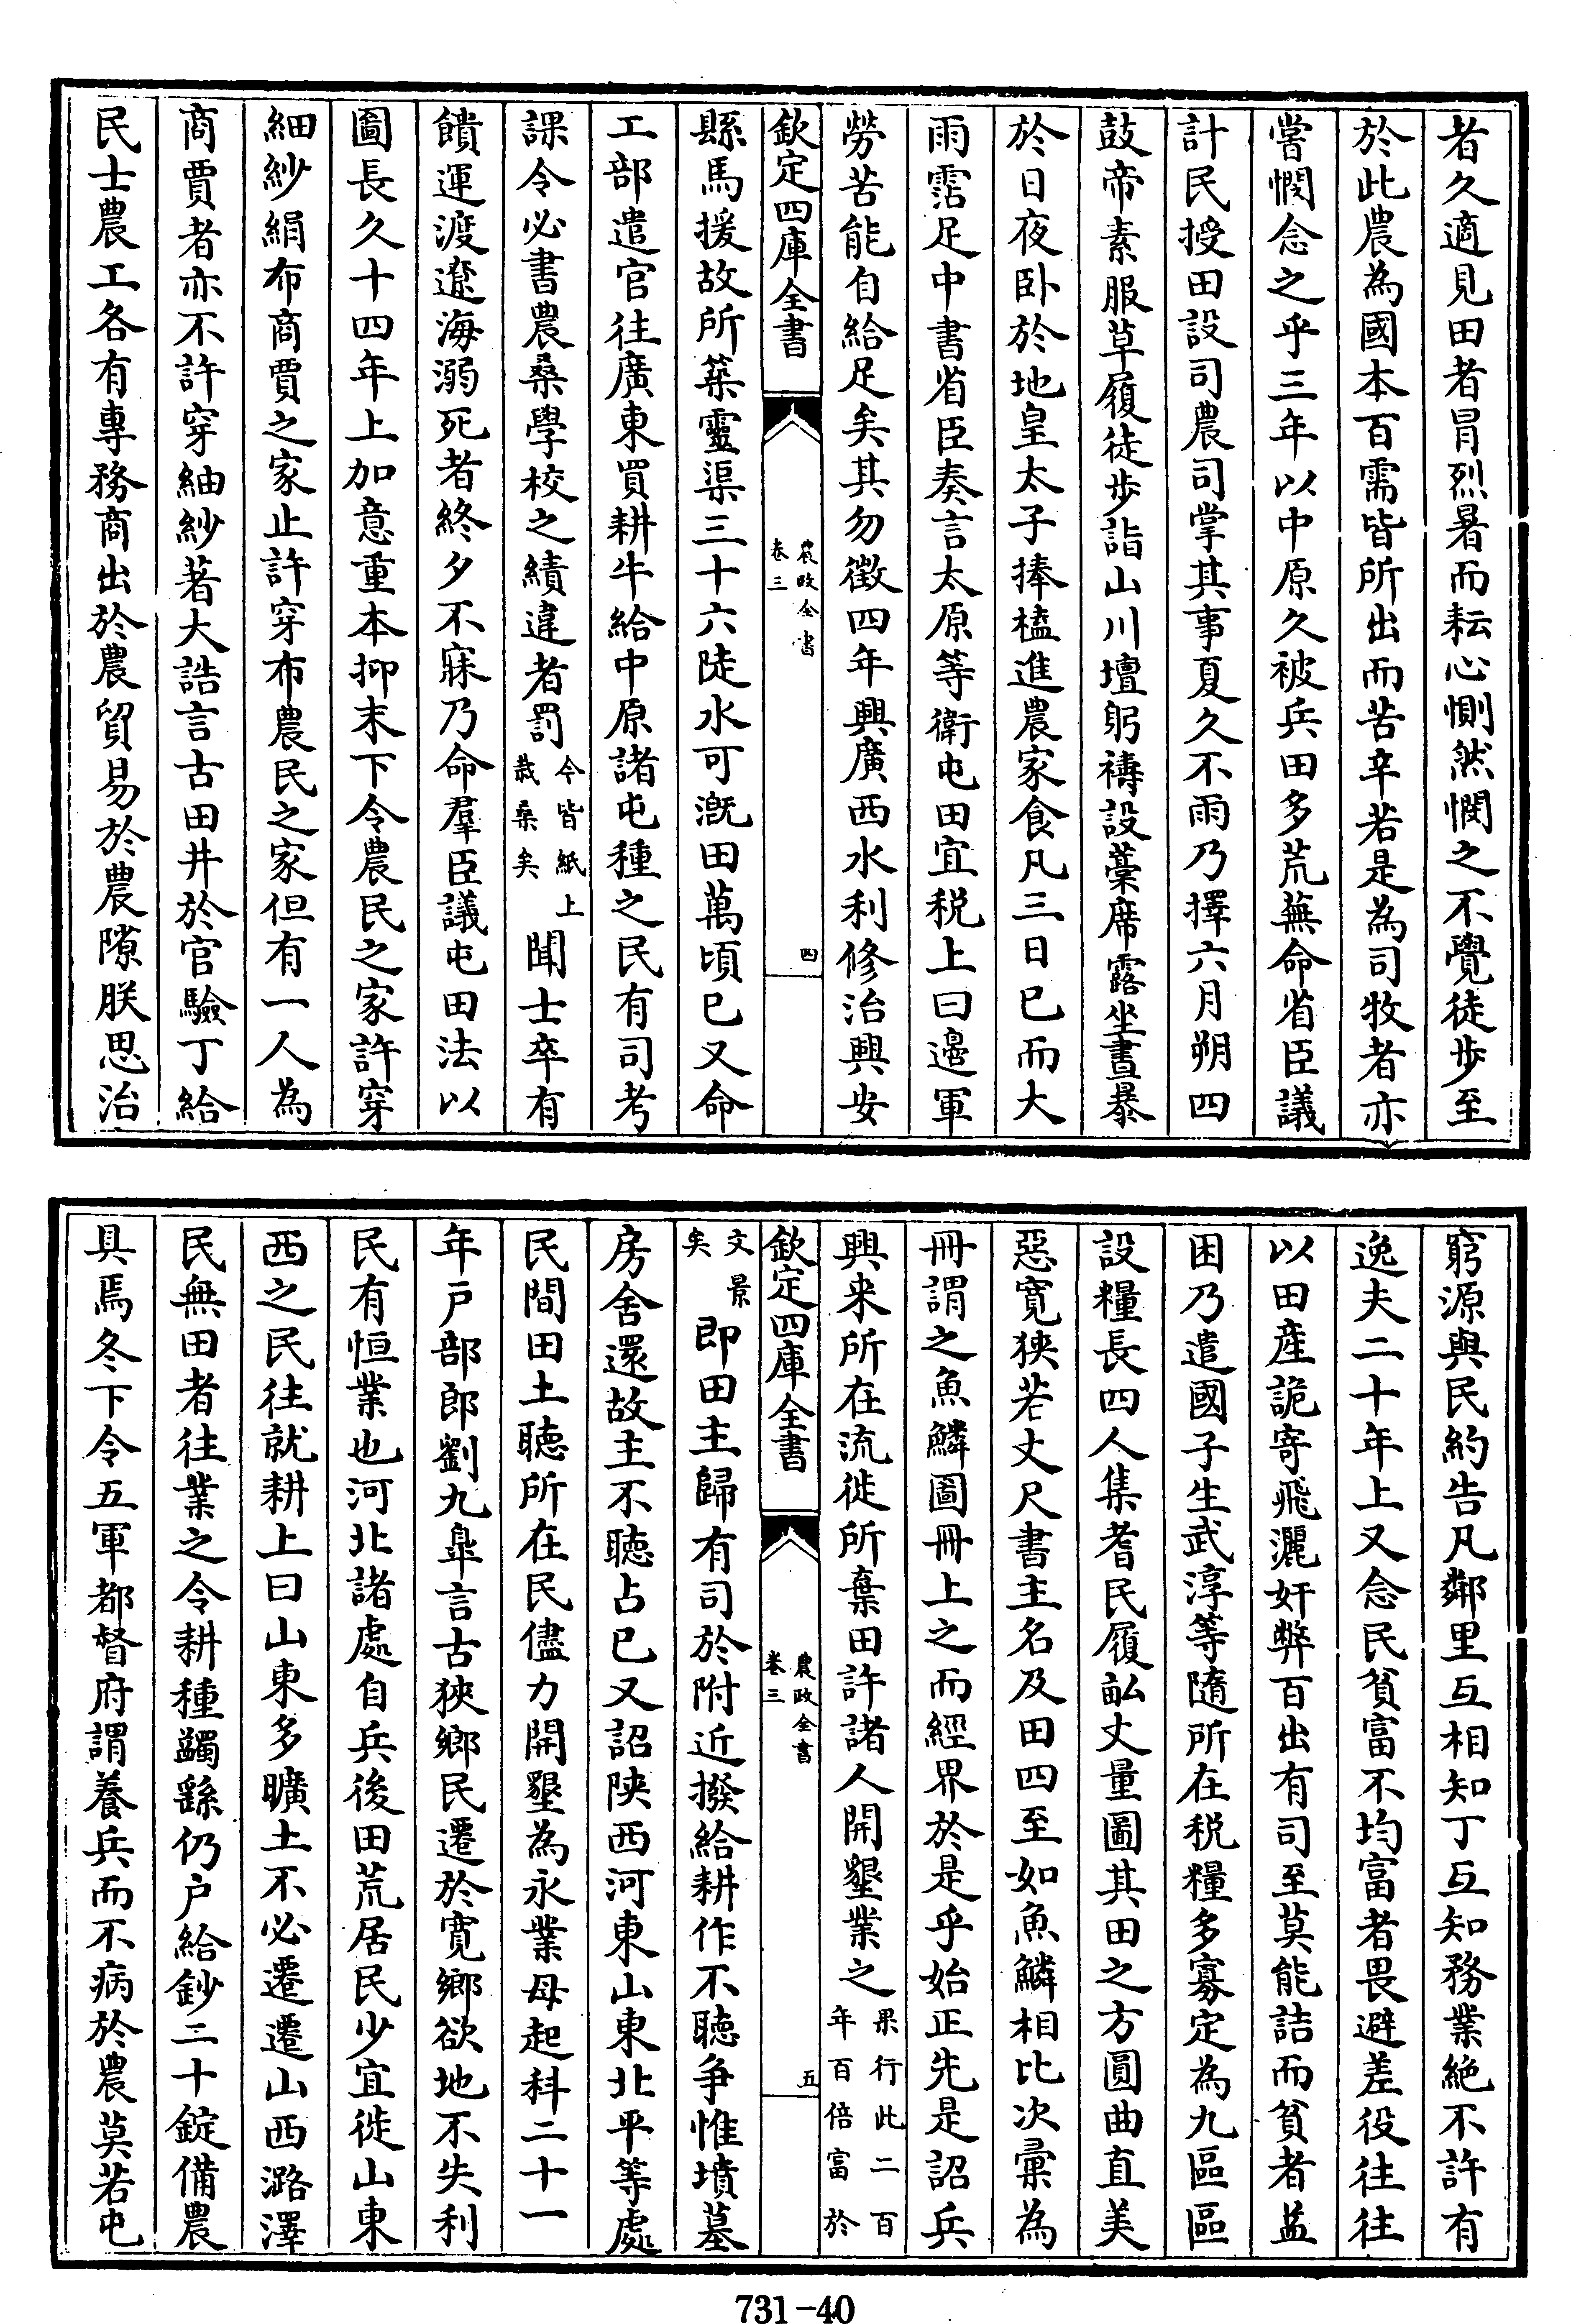 者久適見田者冒烈暑而耘心惻然憫之不覺徒步至
於此農為國本百需皆所出而苦辛若是為司牧者亦
嘗憫念之乎三年以中原久被兵田多荒蕪命省臣議
計民授田設司農司掌其事夏久不雨乃擇六月朔四
鼓帝素服草履徒步詣山川壇躬禱設藁席露坐晝暴
於日夜卧於地皇太子捧榼進農家食凡三日已而大
雨霑足中書省臣奏言太原等衛屯田宜税上曰邊軍
勞苦能自給足矣其勿徵四年興廣西水利修治興安
欽定四庫全書
農政全書
卷三
四
縣馬援故所築靈渠三十六陡水可漑田萬頃已又命
工部遣官往廣東買耕牛給中原諸屯種之民有司考
課令必書農桑學校之績違者罰
今皆紙上
栽桑矣
聞士卒有
饋運渡遼海溺死者終夕不寐乃命羣臣議屯田法以
圖長久十四年上加意重本抑末下令農民之家許穿
細紗絹布商賈之家止許穿布農民之家但有一人為
商賈者亦不許穿紬紗著大誥言古田井於官驗丁給
民士農工各有專務商出於農貿易於農隙朕思治
窮源與民約告凡鄰里互相知丁互知務業絶不許有
逸夫二十年上又念民貧富不均富者畏避差役往往
以田產詭寄飛灑奸弊百出有司至莫能詰而貧者益
困乃遣國子生武淳等隨所在税糧多寡定為九區區
設糧長四人集耆民履畝丈量圖其田之方圓曲直美
惡寛狹若丈尺書主名及田四至如魚鱗相比次彙為
冊謂之魚鱗圖冊上之而經界於是乎始正先是詔兵
興來所在流徙所棄田許諸人開墾業之
果行此二百
年百倍富於
欽定四庫全書
農政全書
卷三
五
文景
矣
即田主歸有司於附近撥給耕作不聽争惟墳墓
房舍還故主不聽占已又詔陕西河東山東北平等處
民間田土聽所在民儘力開墾為永業毋起科二十一
年戸部郎劉九臯言古狹鄉民遷於寛鄉欲地不失利
民有恒業也河北諸處自兵後田荒居民少宜徙山東
西之民往就耕上曰山東多曠土不必遷遷山西潞澤
民無田者往業之令耕種蠲繇仍户給鈔二十錠備農
具焉冬下令五軍都督府謂養兵而不病於農莫若屯
731-40